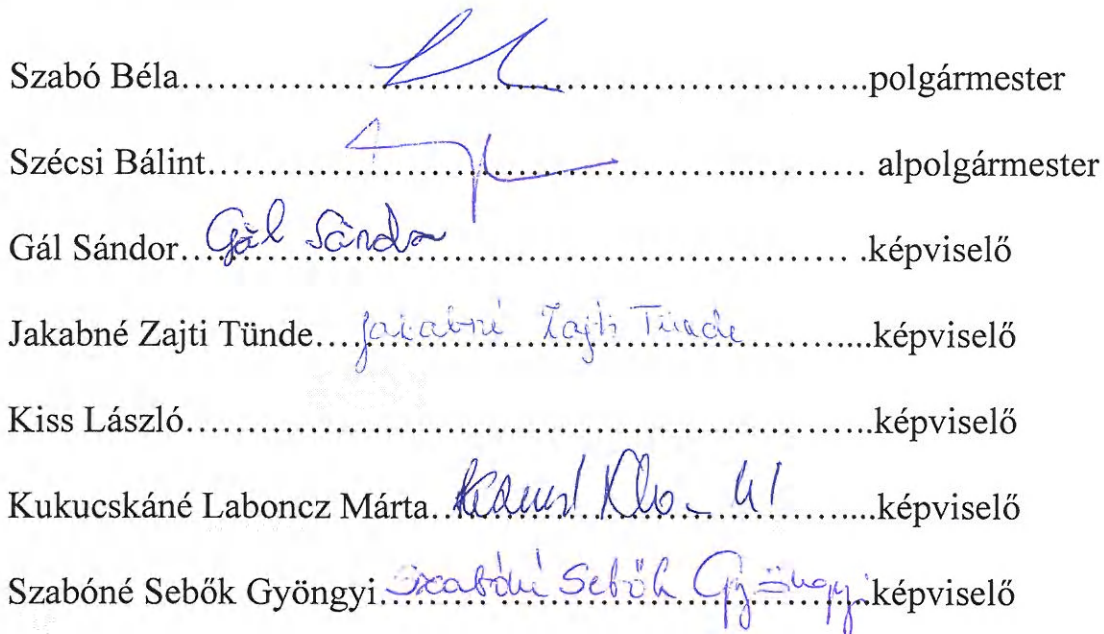 Szabó Béla……………………………………………………..polgármester
Szécsi Bálint………………………………………...……… alpolgármester
Gál Sándor…Gál Sándor…………………………………… .képviselő
Jakabné Zajti Tünde….Jakabné Zajti Tünde…………....képviselő
Kiss László…………………………………………………….képviselő
Kukucskáné Laboncz Márta…………………………………...képviselő
Szabóné Sebők Gyöngyi…Szabóné Sebők Gyöngyi…..képviselő